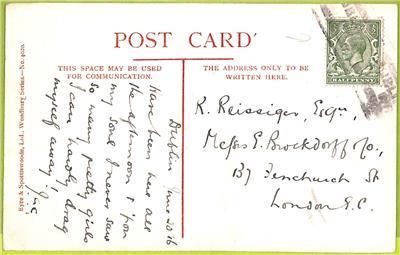 POST CARD
THIS SPACE MAY BE USED
FOR COMMUNICATION.
THE ADDRESS ONLY TO BE
WRITTEN HERE.
Eyre & Spottiswoode, Ltd., Woodbury Series—No.
Dublin June 20 16
have been here all
the afternoon & 'pon
my soul I never saw
so many pretty girls
I can hardly drag
myself away!
HALFPENNY
R. Reissiger, Esqre,
Messrs E. Brockdorff & Co.,
137 Fenchurch St
London E.C.